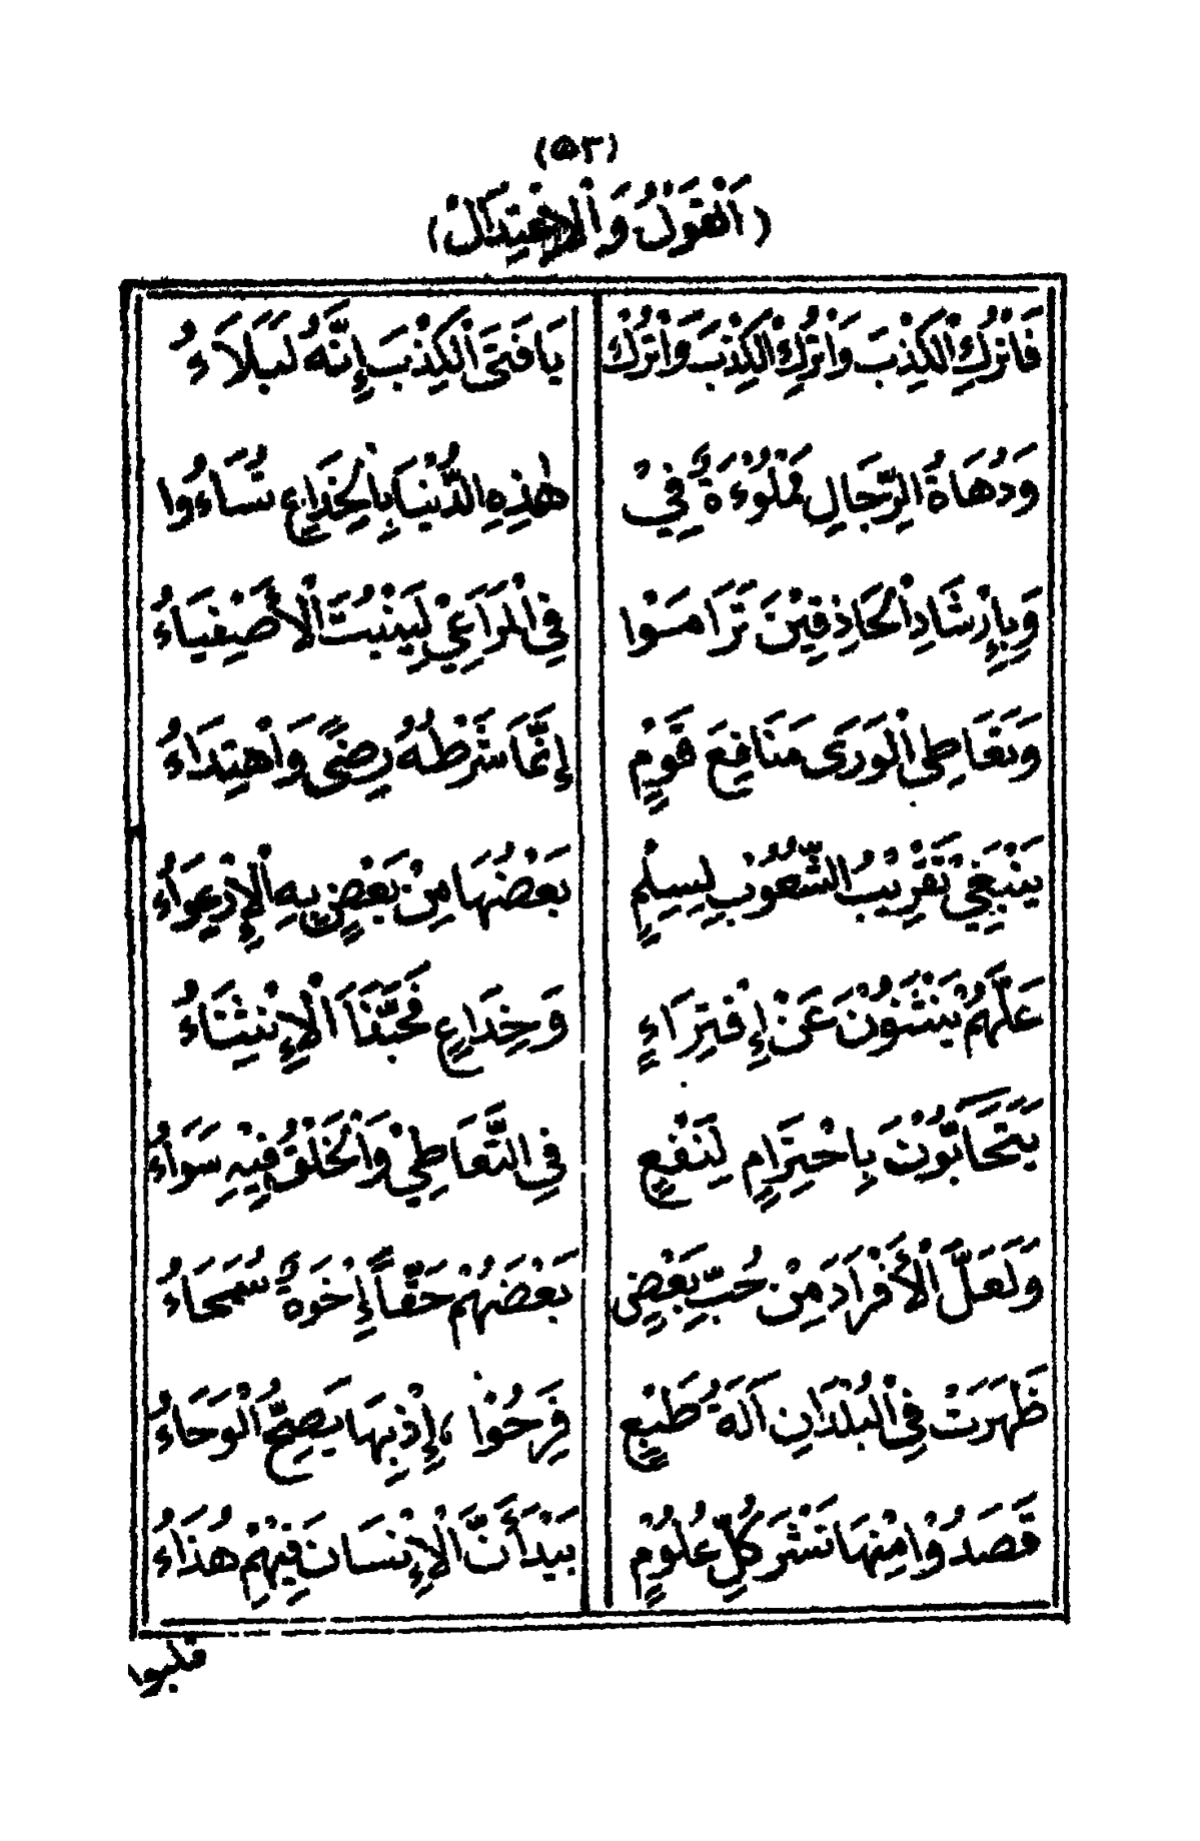 (٥٣)
(اَلْقَوْلُ وَالْاِعْتِدَالْ)
فَاتْرُكِ الْكَذِبَ وَاتْرُكِ الْكِذْبَ وَاتْرُكْ يَا فَتَى الْكِذْبَ إِنَّهُ لَبَلَاءُ
وَدُهَاةُ الرِّجَالِ مَمْلُوْءَةٌ فِيْ هٰذِهِ الدُّنْيَا بِالْخِدَاعِ تُسَاءُوا
وَبِإِرْشَادِ الْحَاذِقِيْنَ تَرَامَوْا فِى الْمَرَاعِيْ لِيَنْبُتَ الْأَصْفِيَاءُ
وَتَعَاطِى الْوَرَى مَنَافِعَ قَوْمٍ إِنَّمَا شَرْطُهُ رِضًى وَاهْتِدَاءُ
يَنْبَغِيْ تَقْرِيْبُ الشُّعُوْبِ لِسِلْمٍ بَعْضُهَا مِنْ بَعْضٍ بِهِ الْاِرْعِوَاءُ
عَلَّهُمْ يَنْثَنُوْنَ عَنْ اِفْتِرَاءٍ وَخِدَاعٍ فَحَبَّذَا الْاِنْثِنَاءُ
يَتَحَابُّوْنَ بِاحْتِرَامٍ لِنَفْعٍ فِى التَّعَاطِيْ وَالْخَلْقُ فِيْهِ سَوَاءُ
وَلَعَلَّ الْأَفْرَادَ مِنْ حُبِّ بَعْضٍ بَعْضَهُمْ حَقّاً إِخْوَةٌ سُمَحَاءُ
ظَهَرَتْ فِى الْبُلْدَانِ آلَةُ طَبْعٍ فَرِحُوْا، إِذْ بِهَا يَصِحُّ الْوَحَاءُ
قَصَدُوْا مِنْهَا نَشْرَ كُلِّ عُلُوْمٍ بَيْدَ أَنَّ الْاِنْسَانَ فِيْهِمْ هُذَاءُ
قلبوا